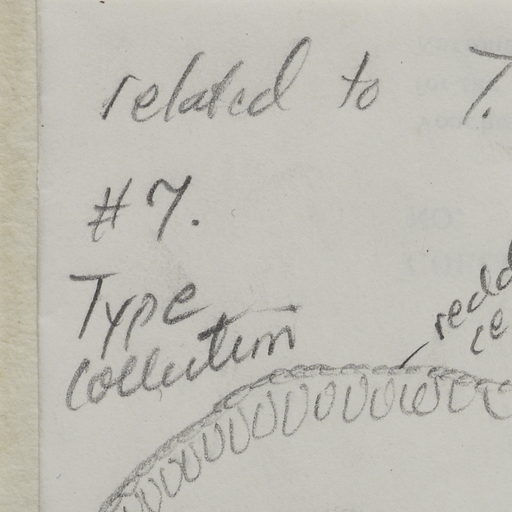 related to T.
#7.
Type
collection
redd
ce